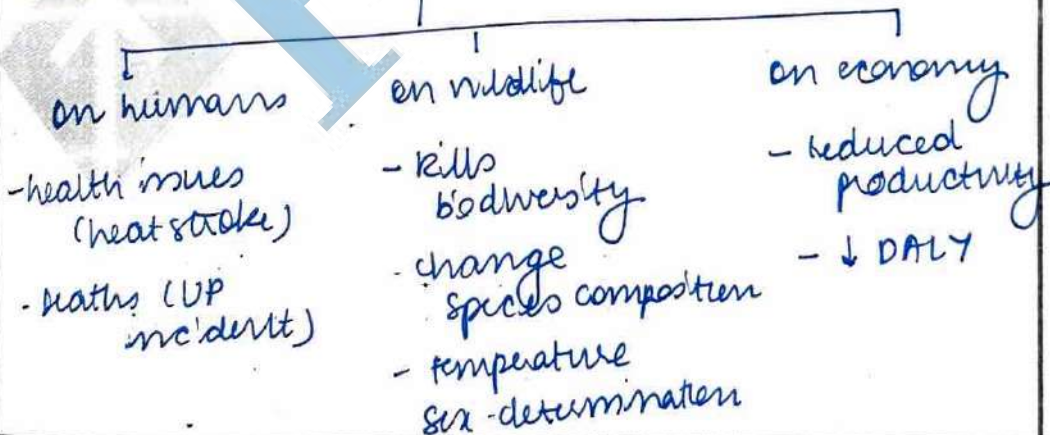 on humans
- health issues
(heat stroke)
- deaths (UP
incident)
on wildlife
- kills
biodiversity
- change
species composition
- temperature
sex-determination
on economy
- reduced
productivity
- ↓ DALY